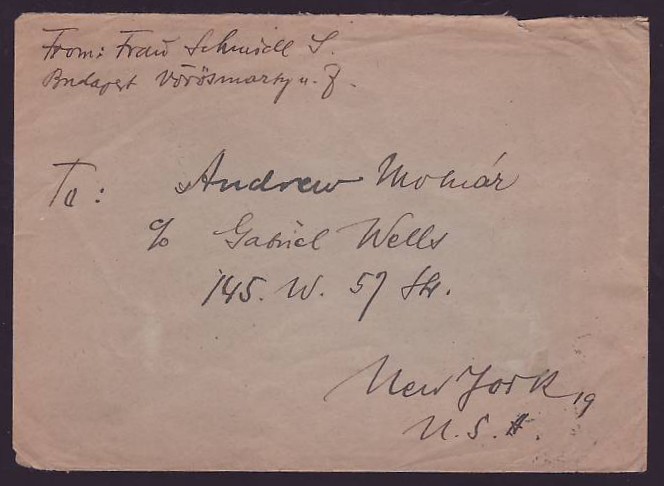 From: Frau Schmidl S.
Budapest Vörösmarty u. 7.
To: Andrew Molnár
c/o Gabriel Wells
145. W. 57 Str.
New York 19
U.S.A.